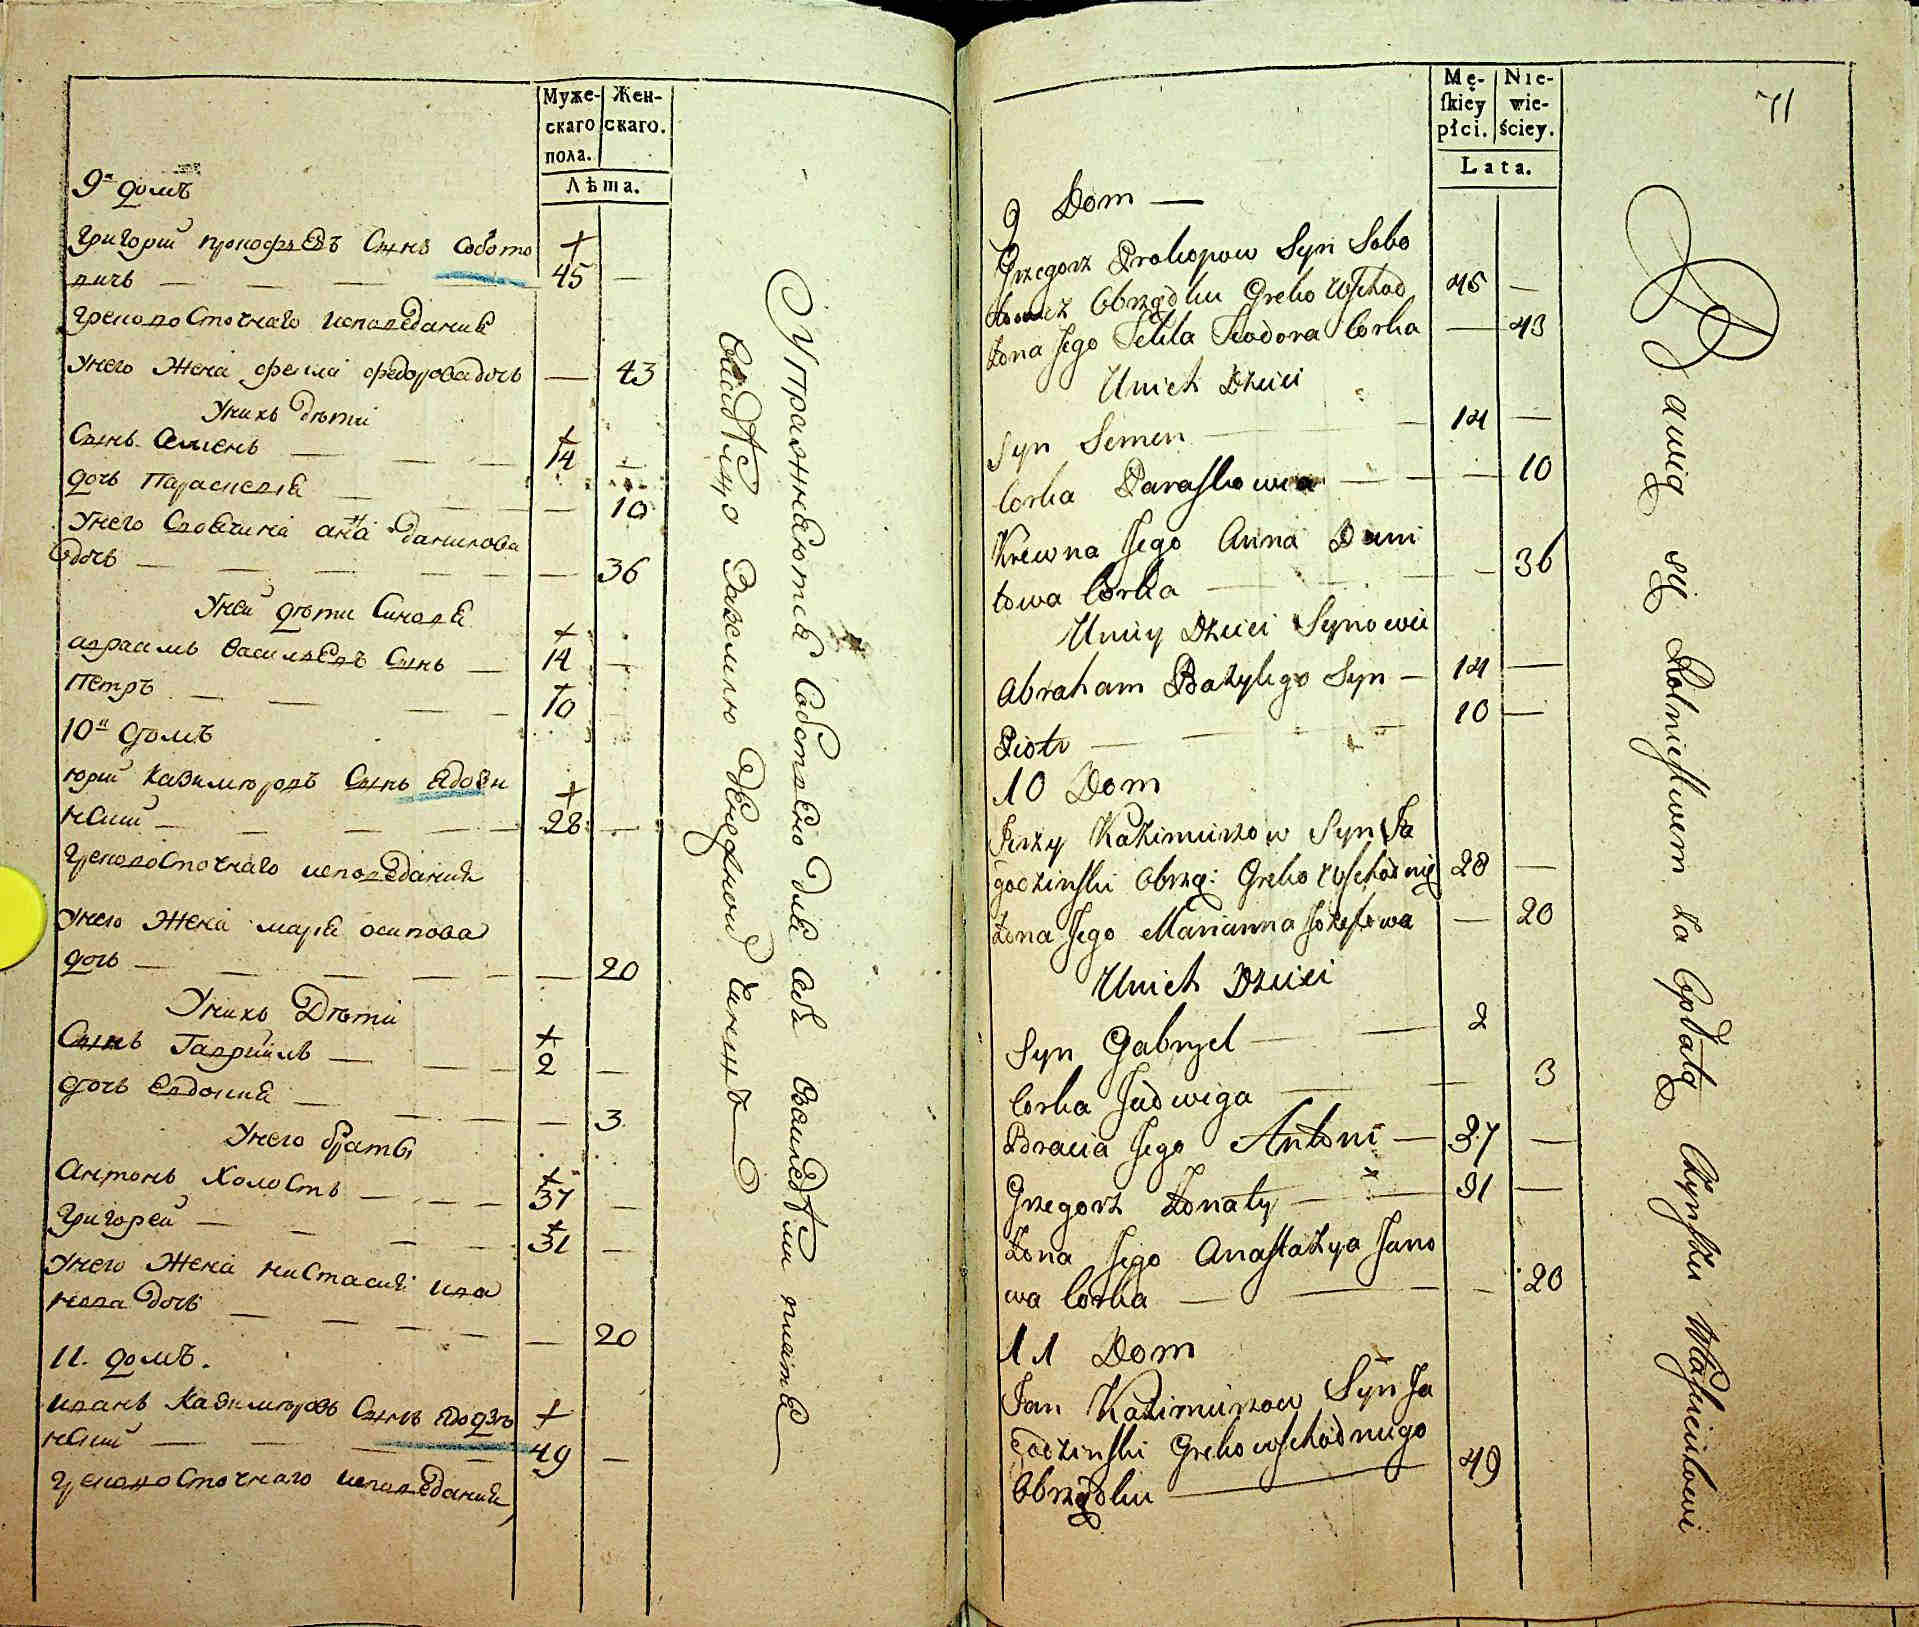 Муже-
скаго
пола.
Жен-
скаго.
Лѣта.
9й домъ
Григорий прокофьевъ Сынъ Собото
вичь — — — 45 —
Грековосточнаго исповедания
Унего Жена фекла федоровадочь — 43
Унихъ Дѣти
Сынъ Семенъ — — — 14 —
дочь Параскевия — — — 10
Унего Своячина анна данилова
дочь — — — — — 36
Уней дѣти Синовя
авраамъ васильевъ Сынъ — 14 —
Петръ — — — 10
10й домъ
юрий Казимировъ Сынъ Ядозин
ский — — — — 28 —
Грековосточнаго исповедания
Унего Жена маря осипова
дочь — — — — — 20
Унихъ Дѣти
Сынъ Гавриилъ — — — 2 —
дочь Евдокия — — — — 3
Унего братья
Антонъ Холостъ — — — 37 —
Григорей — — — — 31 —
Унего Жена настасия ива
нова дочь — — — — — 20
11. домъ.
иванъ Казимировъ Сынъ Ядодзин
ский — — — 49 —
Грековосточнаго исповедания
Упражняются Собственно для себя
за землю чиншъ
Mę-
skiey
płci.
Nie-
wie-
ściey.
Lata.
71
9 Dom —
Grzegorz Prokopow Syn Sobo
Obrządku Greko Wschod 45 —
Zona Jego Tekla Teodora Corka — 43
Unich Dzieci
Syn Semen — — 14 —
Corka Paraskowia — — — 10
Krewna Jego Anna Dani
lowa Corka — — — — 36
Uniey Dzieci Synowie
Abraham Bazylego Syn — 14 —
Piotr — — — 10 —
10 Dom
Jerzy Kazimirzow Syn Ja
godzinski Obrzą: Greko Wschodnig 28 —
Zona Jego Marianna Jozefowa — 20
Unich Dzieci
Syn Gabryel — — 2
Corka Jadwiga — — 3
Bracia Jego Antoni — 37 —
Grzegorz Zonaty — — 31 —
Zona Jego Anastazya Jano
wa Corka — — — — 20
11 Dom
Jan Kazimirzow Syn Ja
godzinski Greko wschodniego
Obrządku — 49
Bawią się Rolnictwem za Opłatą Czynszu Właścicielowi